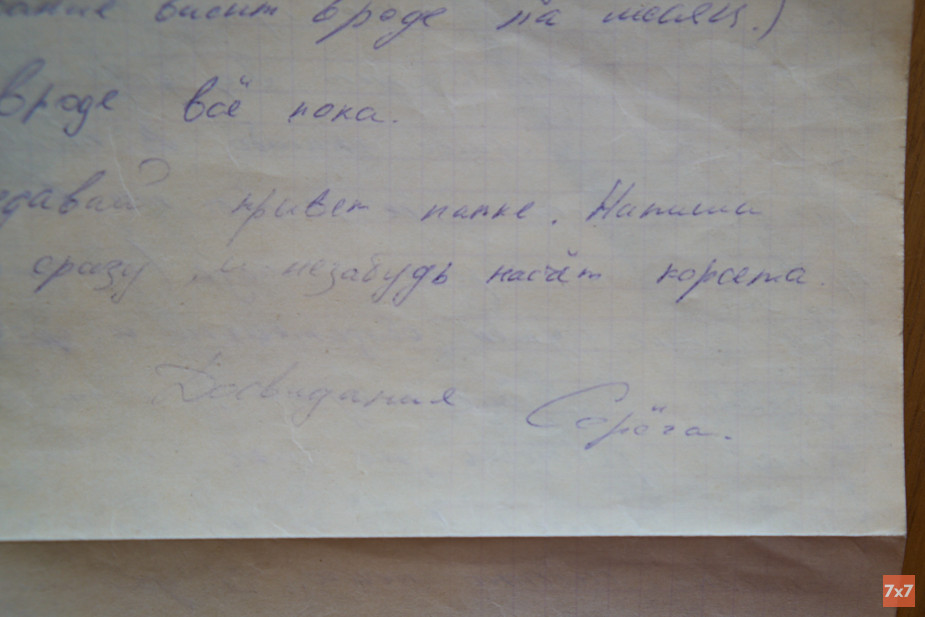 висит вроде на месяц.)
вроде всё пока.
едавай привет папке. Напиши
сразу и незабудь насчёт корсета.
Досвидания Серёга.
7x7